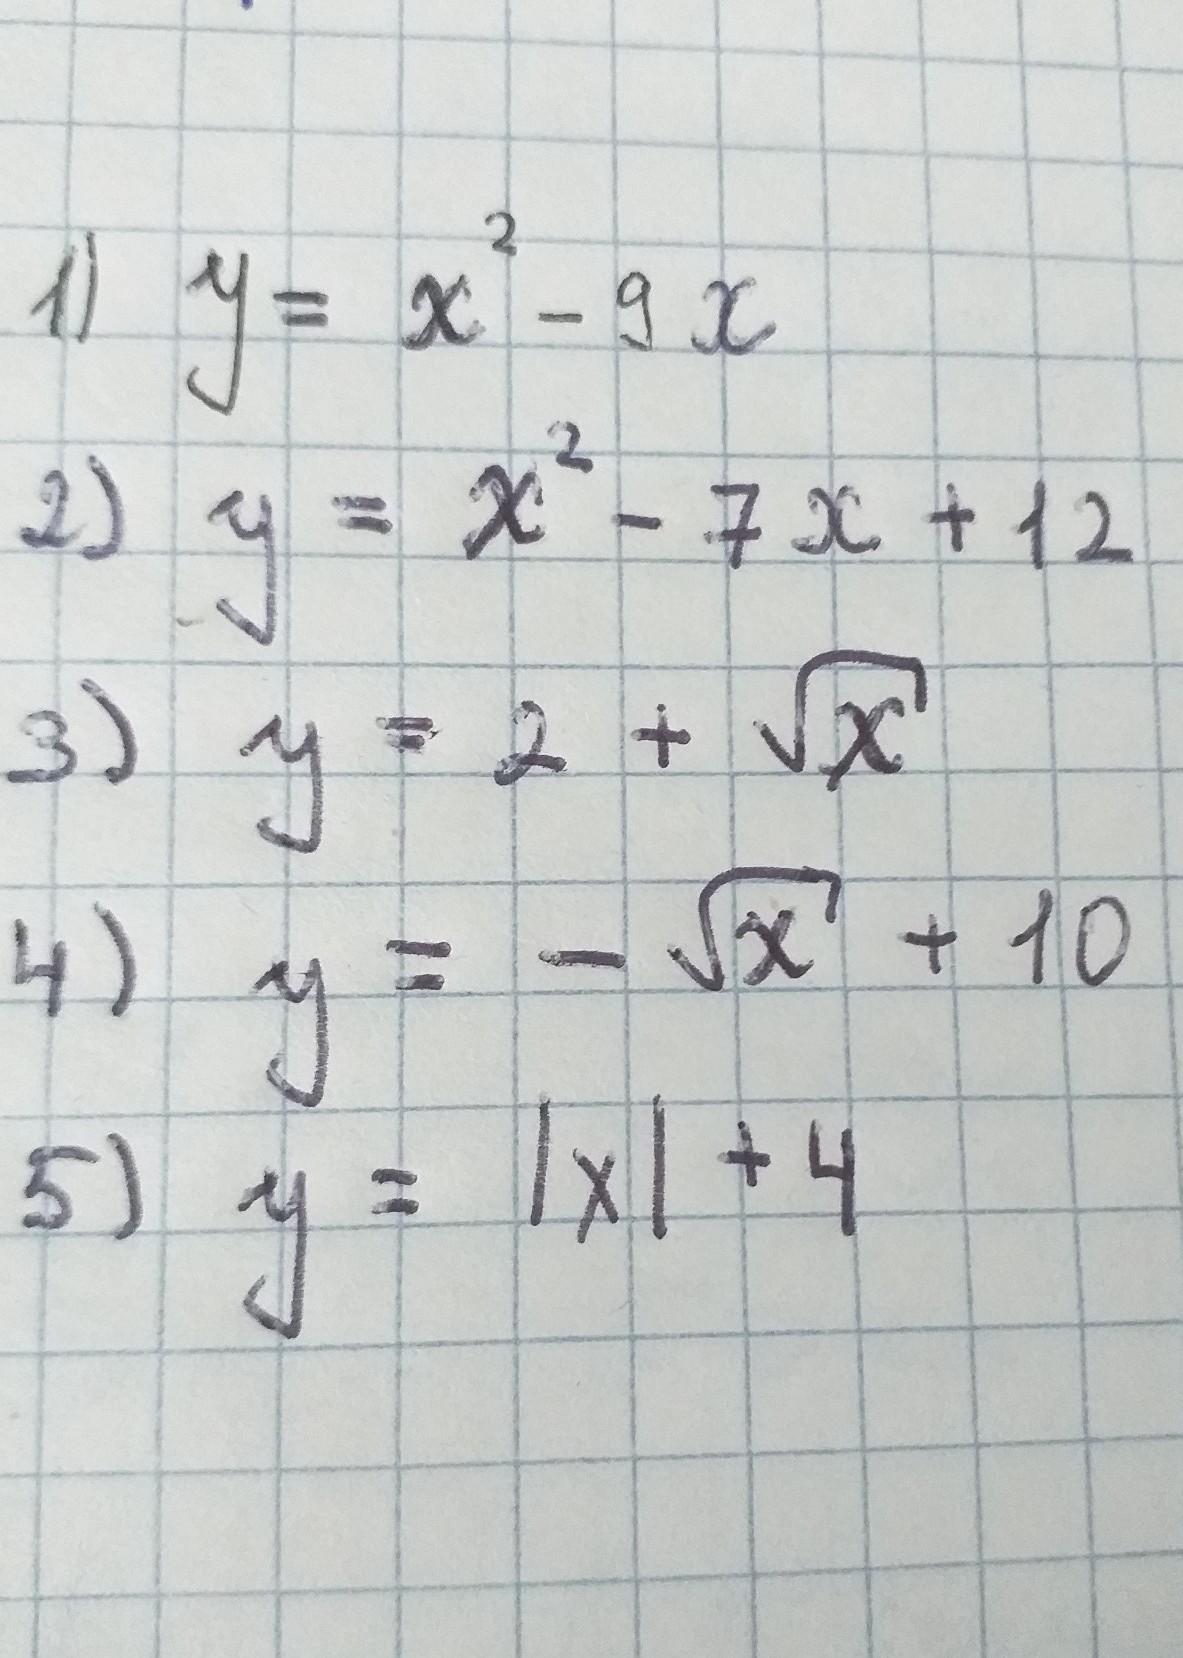 1) y = x² - 9x
2) y = x² - 7x + 12
3) y = 2 + √x
4) y = - √x + 10
5) y = |x| + 4